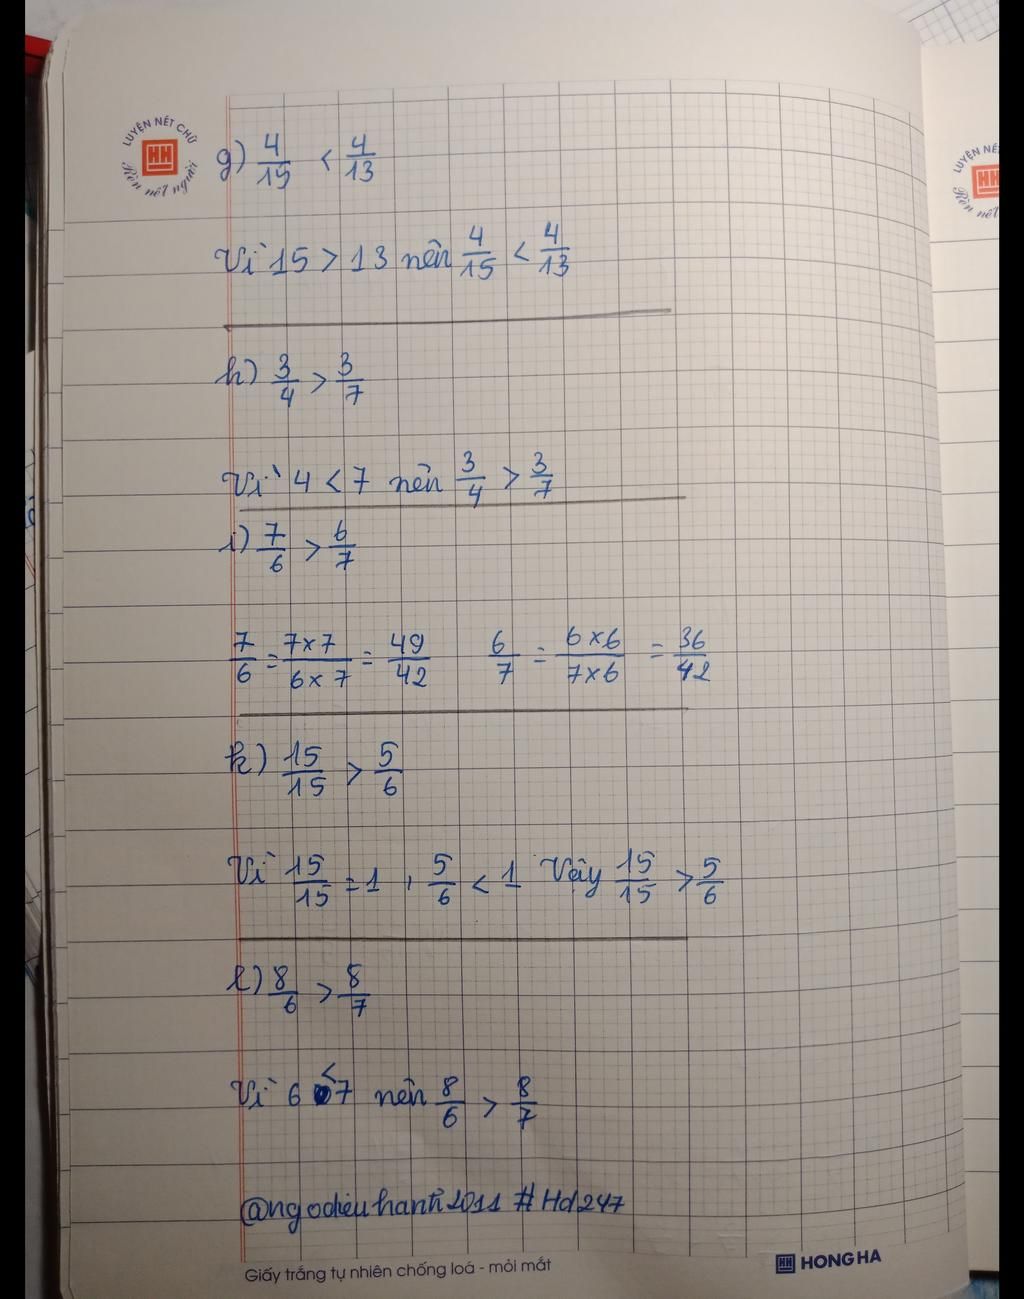 LUYỆN NÉT CHỮ
HH
Rèn nết người
g) 4/15 < 4/13
Vì 15 > 13 nên 4/15 < 4/13
h) 3/4 > 3/7
Vì 4 < 7 nên 3/4 > 3/7
i) 7/6 > 6/7
7/6 = 7x7/6x7 = 49/42 6/7 = 6x6/7x6 = 36/42
k) 15/15 > 5/6
Vì 15/15 = 1, 5/6 < 1 Vậy 15/15 > 5/6
l) 8/6 > 8/7
Vì 6 < 7 nên 8/6 > 8/7
@ngodieuhanh2011 #Hd247
Giấy trắng tự nhiên chống loá - mỏi mắt
HH HONG HA
LUYỆN NÉ
HH
Rèn nết